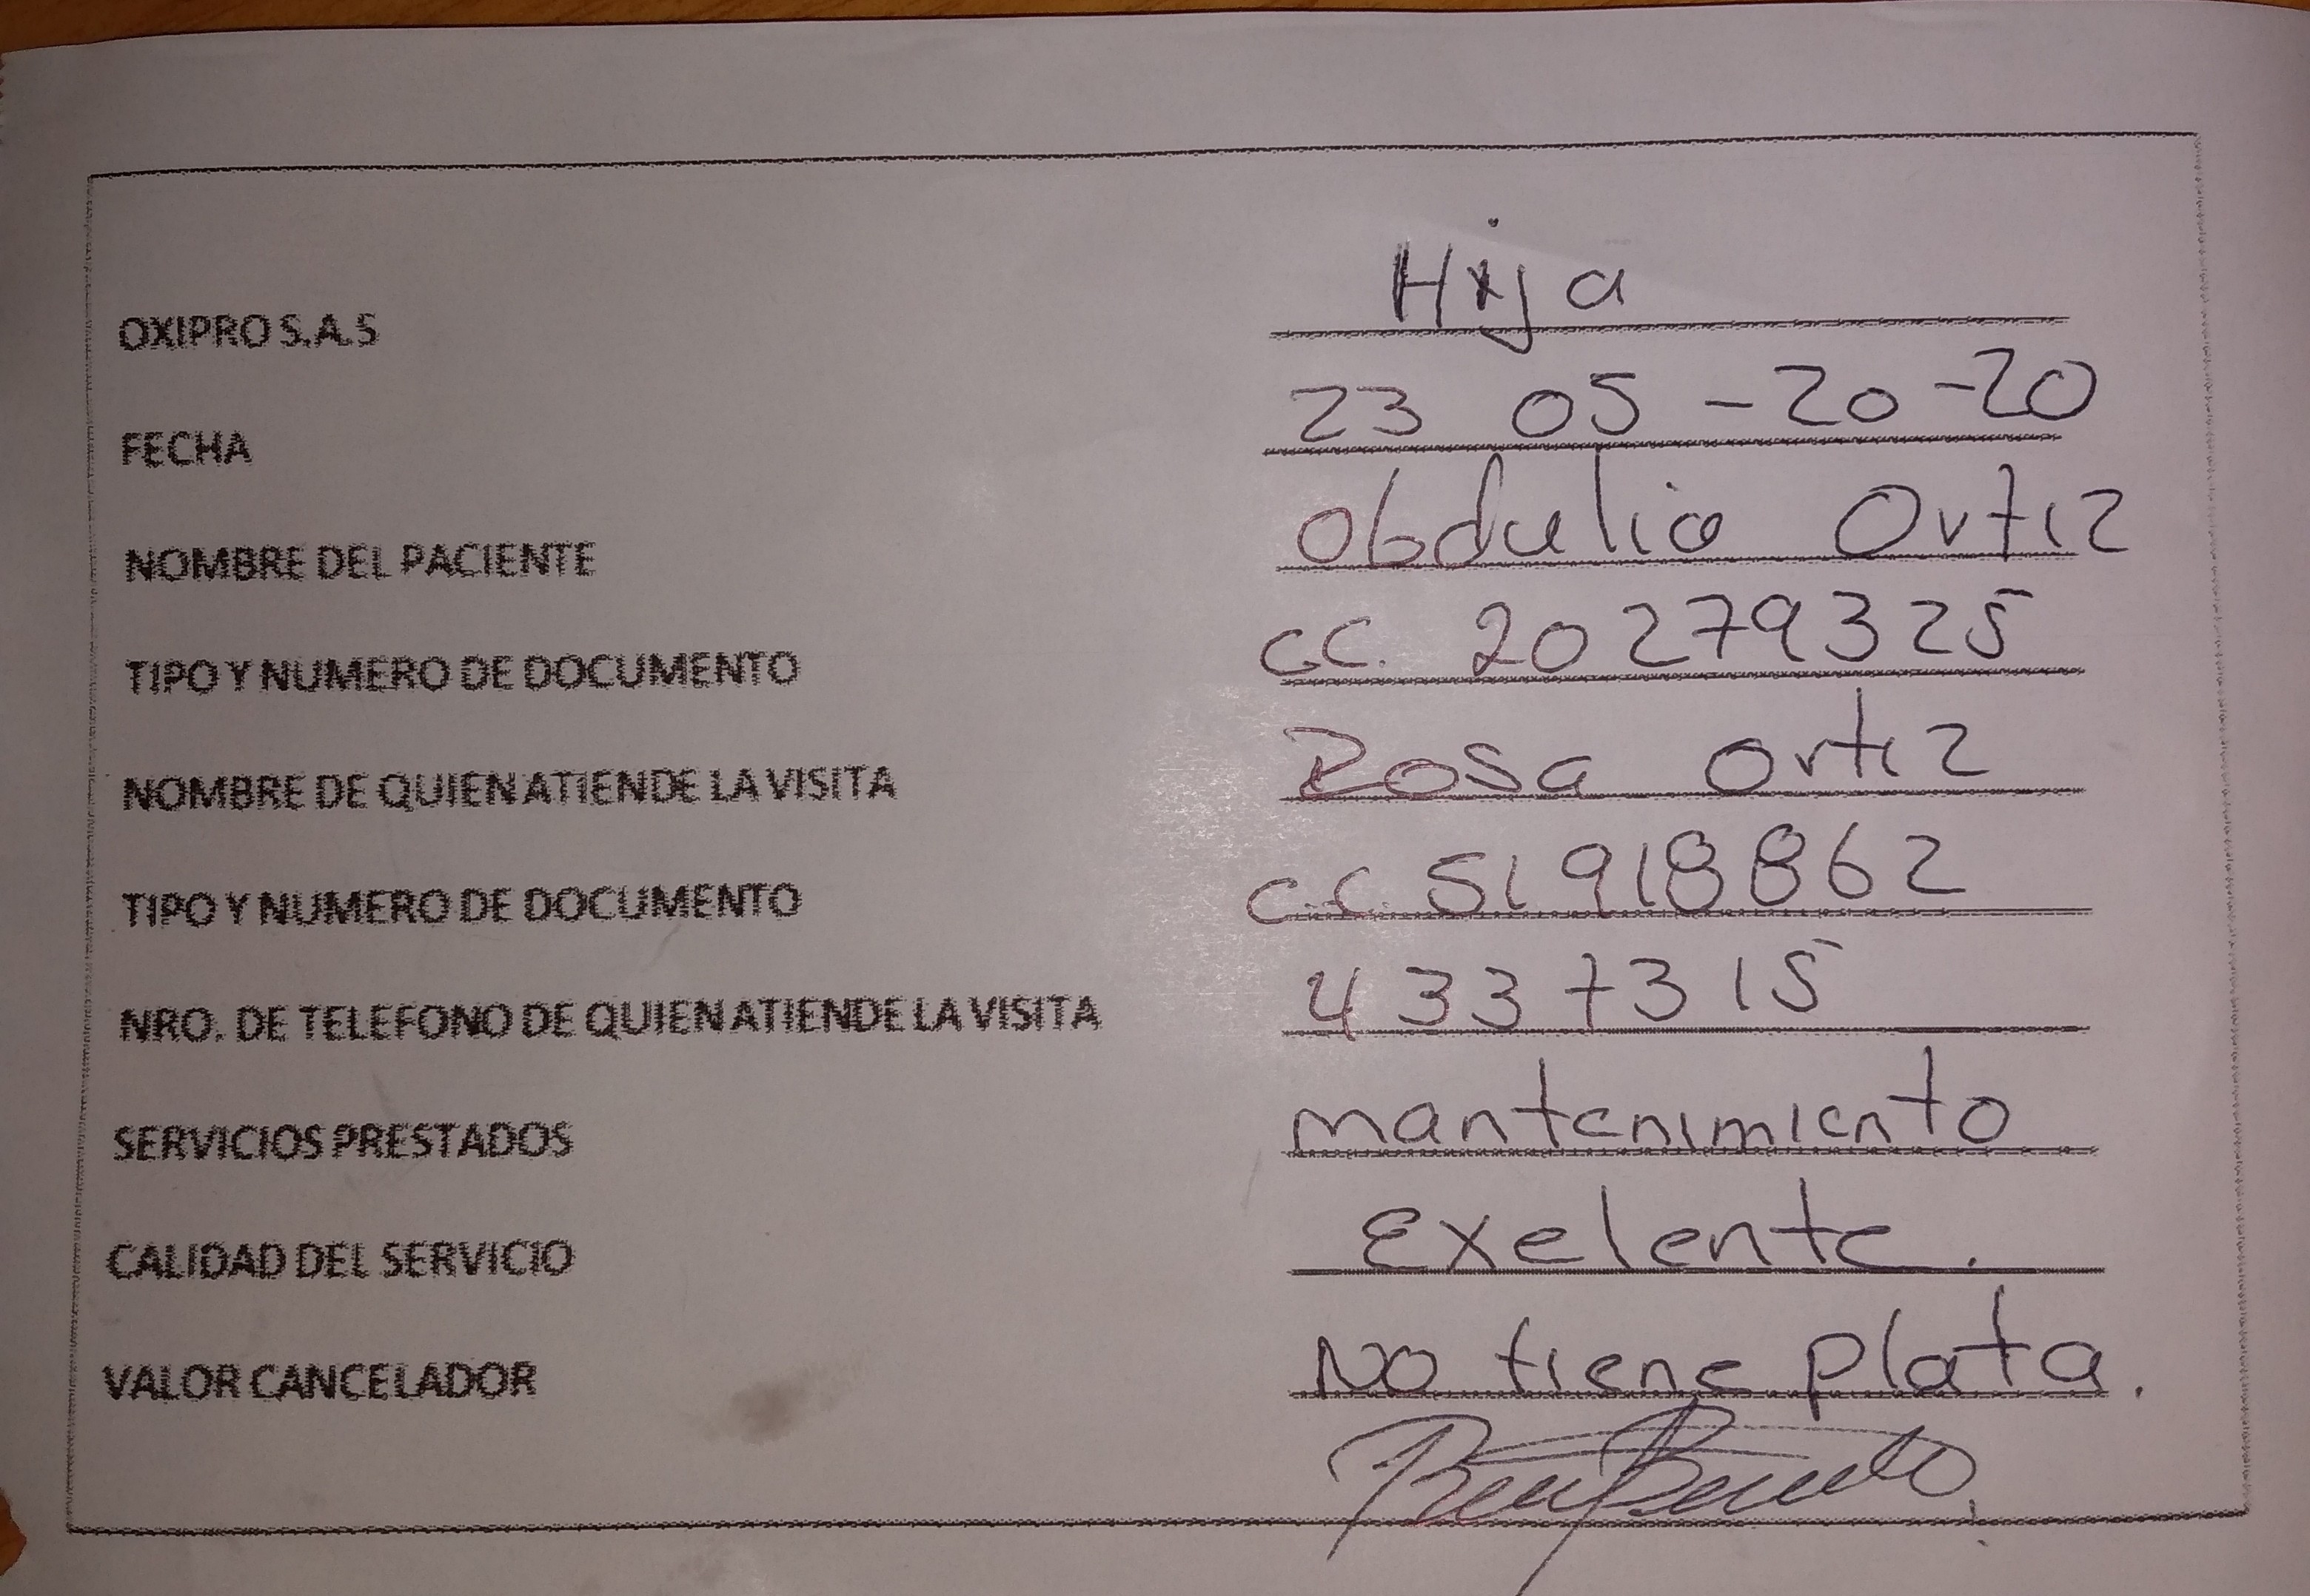 OXIPRO S.A.S Hija
FECHA 23 05 - 20 - 20
NOMBRE DEL PACIENTE Obdulia Ortiz
TIPO Y NUMERO DE DOCUMENTO CC. 20279325
NOMBRE DE QUIEN ATIENDE LA VISITA Rosa Ortiz
TIPO Y NUMERO DE DOCUMENTO C.C. 51918862
NRO. DE TELEFONO DE QUIEN ATIENDE LA VISITA 4337315
SERVICIOS PRESTADOS mantenimiento
CALIDAD DEL SERVICIO Exelente.
VALOR CANCELADOR No tiene plata.